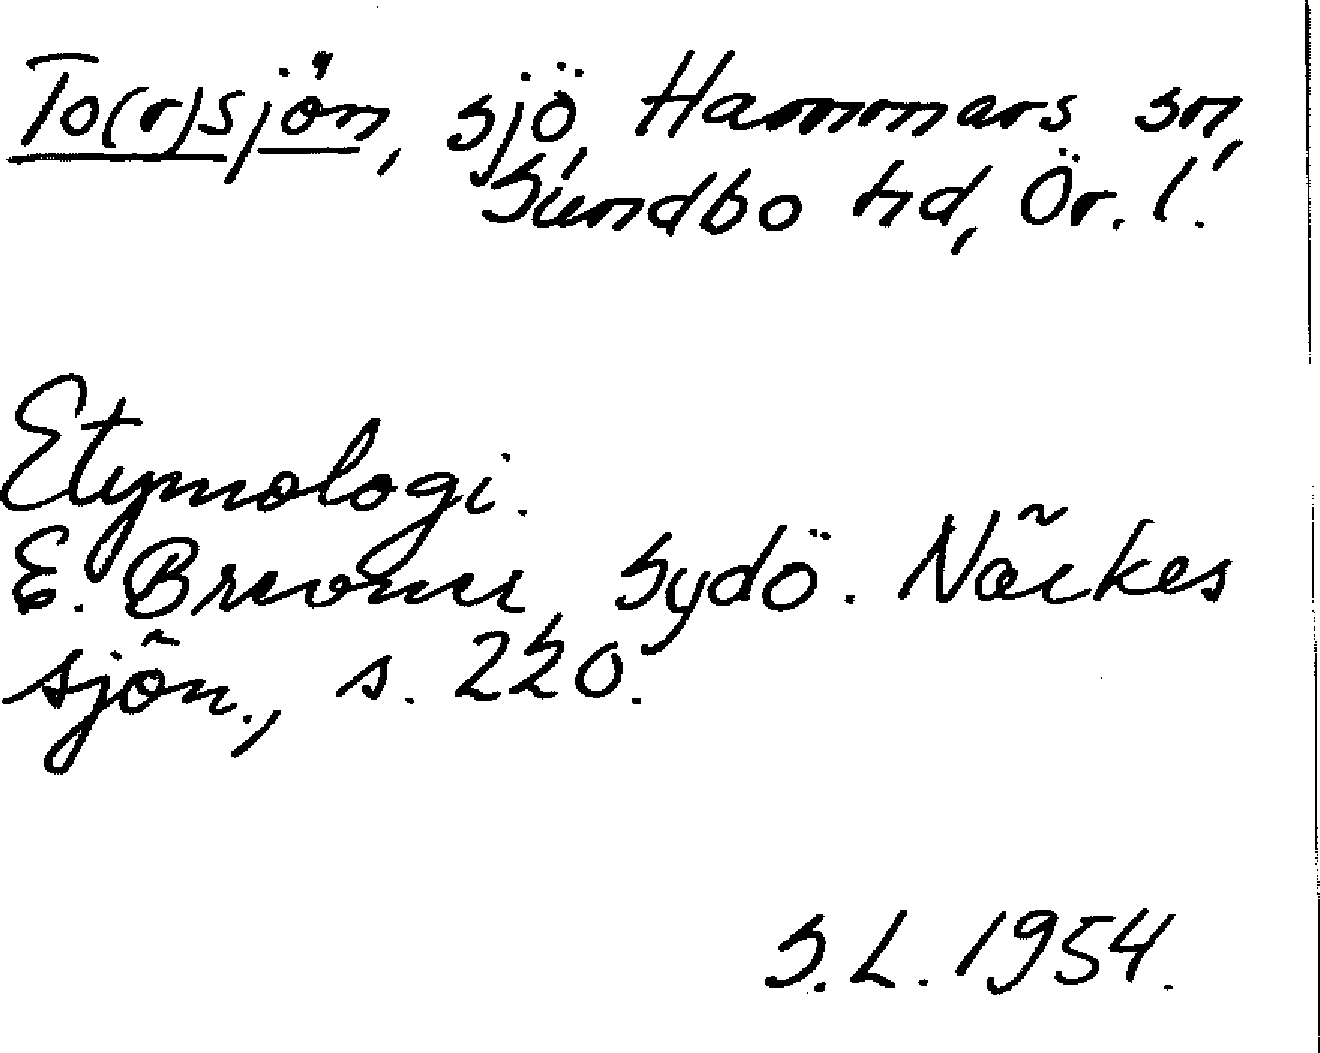 To(r)sjön, sjö, Hammars sn,
Sundbo hd, Ör. l.
Etymologi.
E. Brevner, Sydö. Närkes
sjön., s. 220.
S.L. 1954.